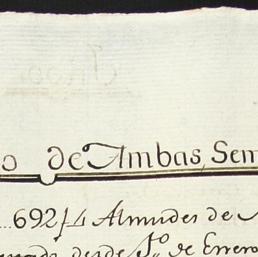 o de Ambas Sem
692/4 Almudes de
desde 1º de Enero